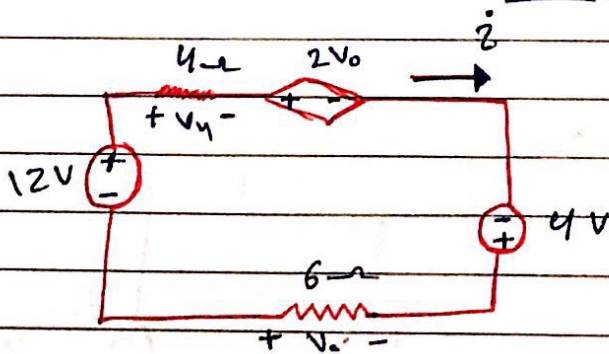 i
4Ω 2V₀
+ - 
+ V₄ -
12V
+
-
-
+
4V
6Ω
+ V₀ -